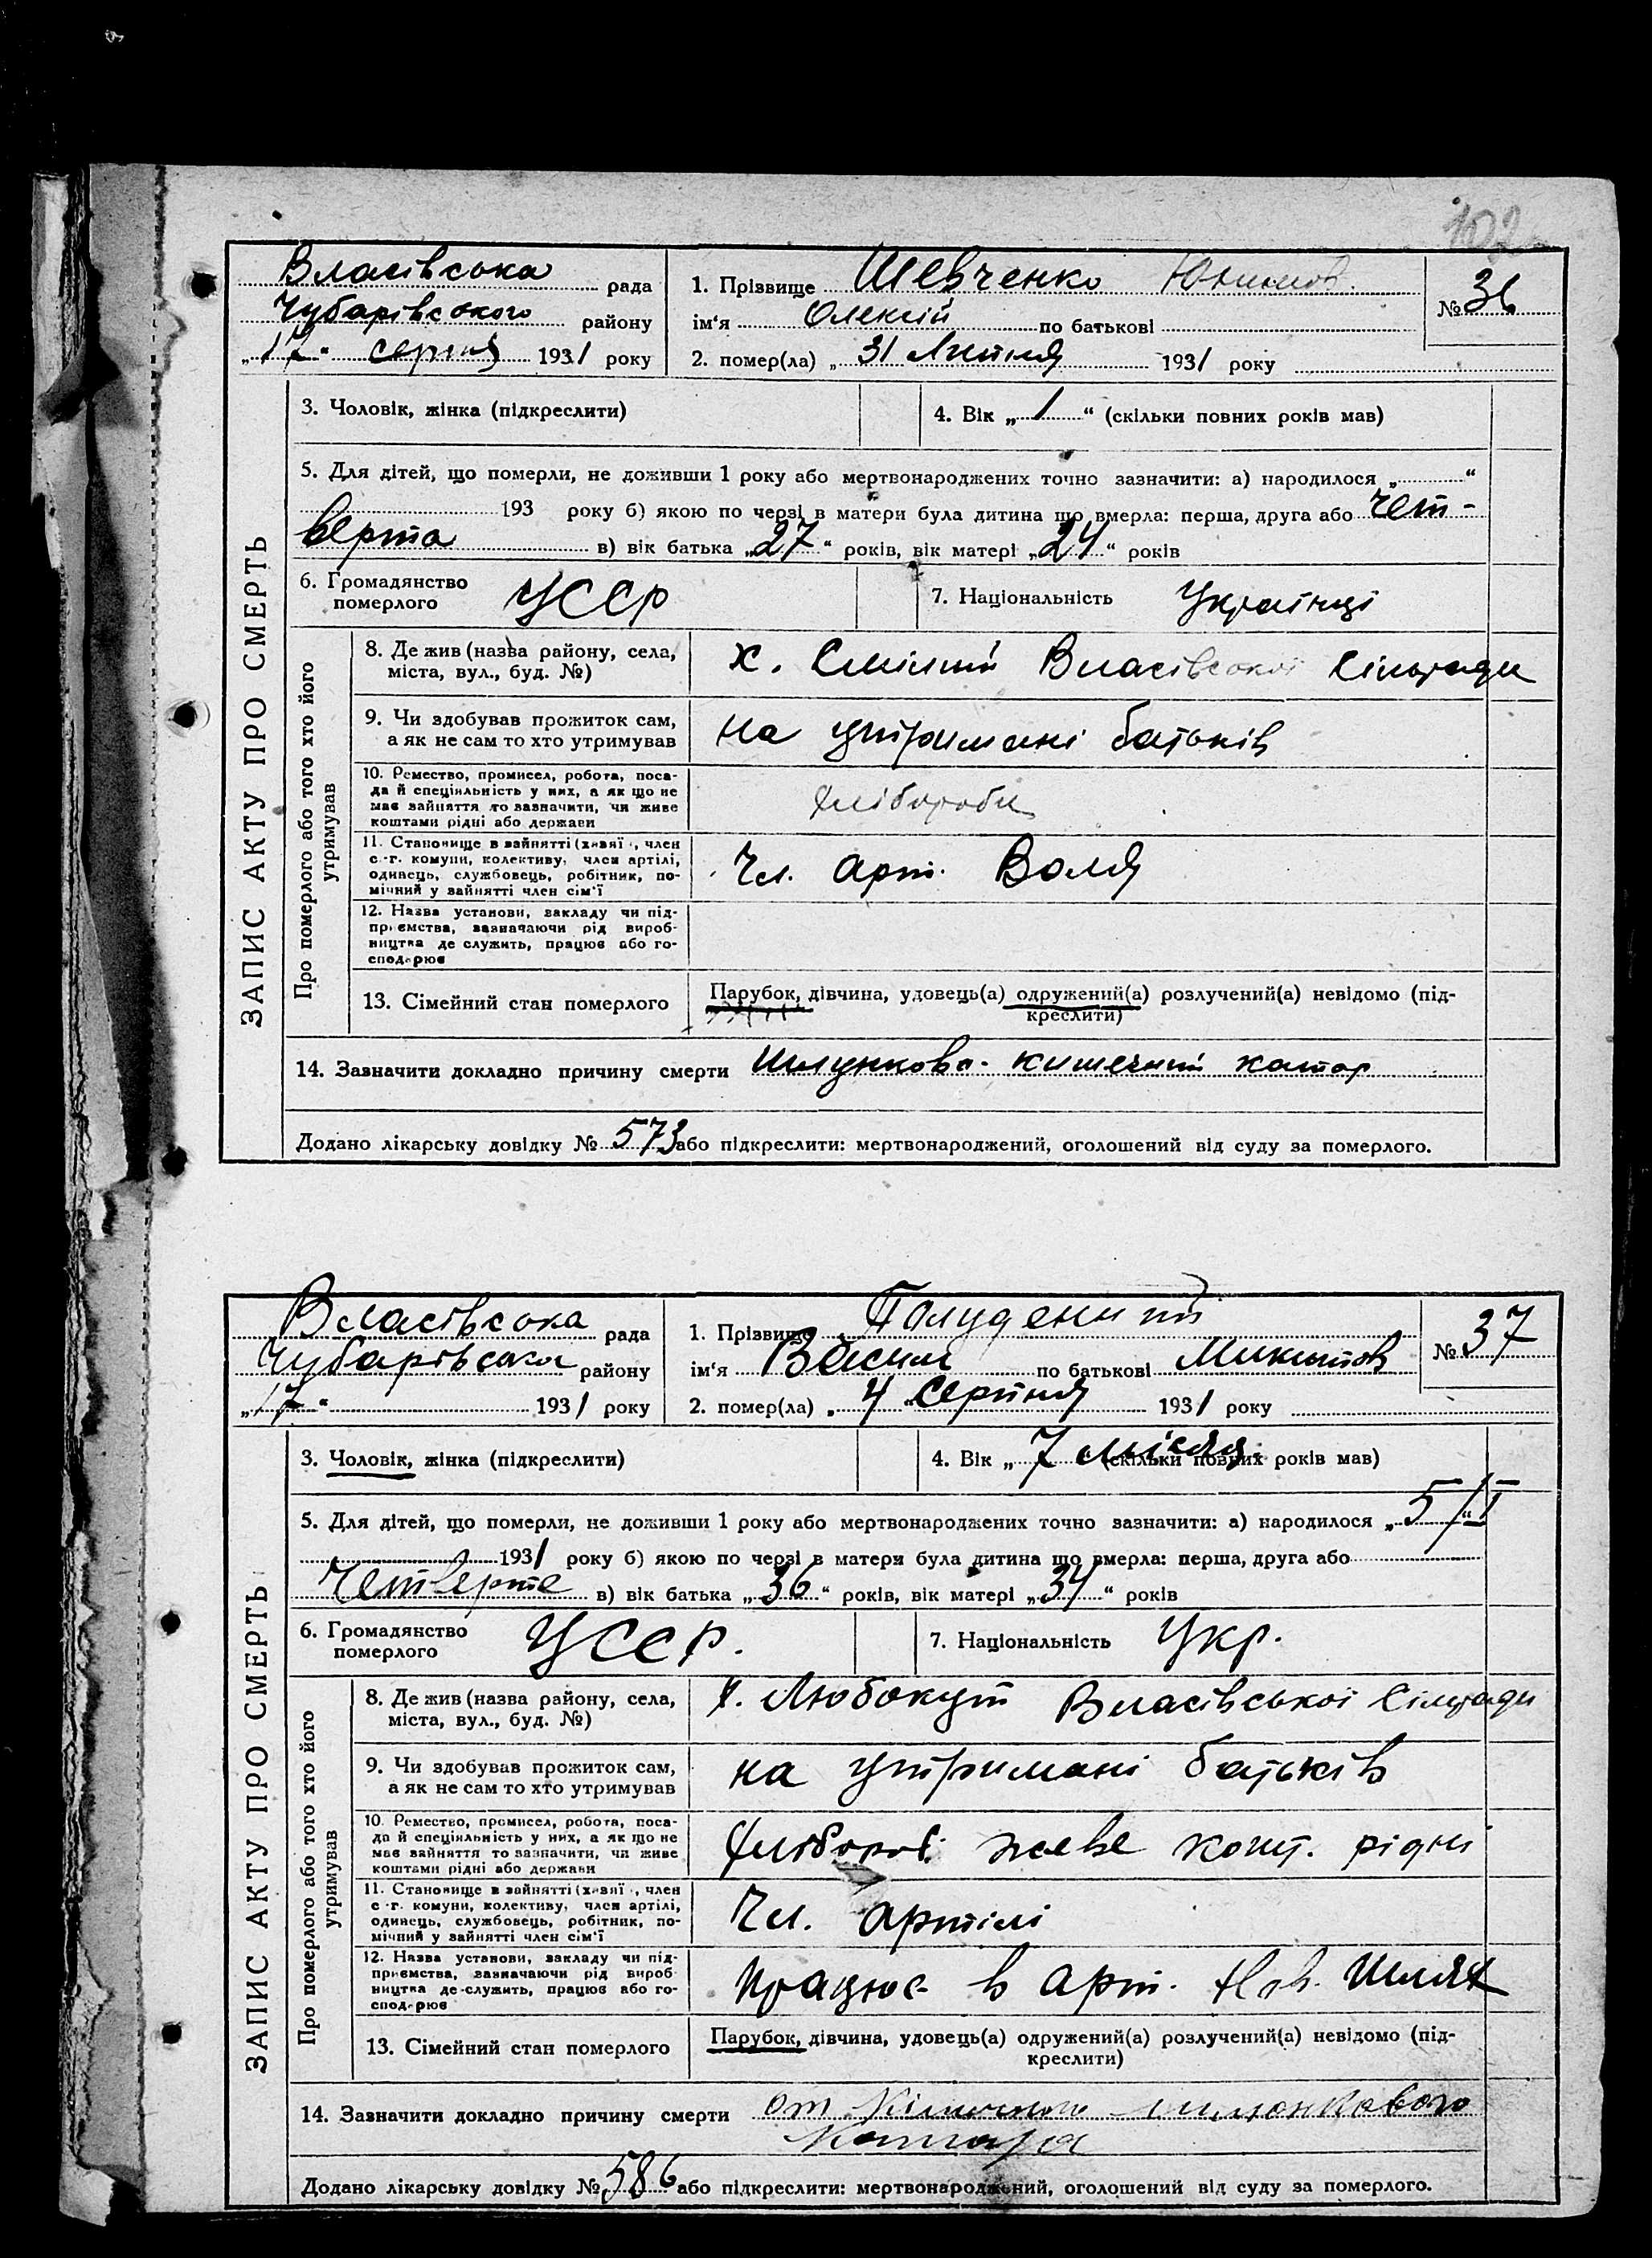 102
Власівська рада
Чубарівського району
„17“ серпня 1931 року
1. Прізвище Шевченко
ім'я Олексій по батькові
2. помер(ла) „31 Липня 1931 року
№ 36
ЗАПИС АКТУ ПРО СМЕРТЬ
3. Чоловік, жінка (підкреслити)
4. Вік „1“ (скільки повних років мав)
5. Для дітей, що померли, не доживши 1 року або мертвонароджених точно зазначити: а) народилося „ “
193 року б) якою по черзі в матери була дитина що вмерла: перша, друга або чет-
верта в) вік батька „27“ років, вік матері „24“ років
6. Громадянство
померлого
УССР
7. Національність Українці
Про померлого або того хто його
утримував
8. Де жив (назва району, села,
міста, вул., буд. №)
х. Смілий Власівської Сільради
9. Чи здобував прожиток сам,
а як не сам то хто утримував
на утримані батьків
10. Ремество, промисел, робота, поса-
да й спеціяльність у них, а як що не
має зайняття то зазначити, чи живе
коштами рідні або держави
хліборобы
11. Становище в зайнятті (хазяї , член
с.-г. комуни, колективу, член артілі,
одинець, службовець, робітник, по-
мічний у зайнятті член сім'ї
Чл. арт. Воля
12. Назва установи, закладу чи під-
приємства, зазначаючи рід вироб-
ництва де служить, працює або го-
сподарює
13. Сімейний стан померлого
Парубок, дівчина, удовець(а) одружений(а) розлучений(а) невідомо (під-
креслити)
14. Зазначити докладно причину смерти Шлунково-кишечний катар
Додано лікарську довідку № 573 або підкреслити: мертвонароджений, оголошений від суду за померлого.
Власівська рада
Чубарівська району
„17“ 1931 року
1. Прізвище Полуденний
ім'я Василь по батькові Микитов
2. помер(ла) „4 Серпня 1931 року
№ 37
ЗАПИС АКТУ ПРО СМЕРТЬ
3. Чоловік, жінка (підкреслити)
4. Вік „7 місяц. (скільки повних років мав)
5. Для дітей, що померли, не доживши 1 року або мертвонароджених точно зазначити: а) народилося „5/I“
1931 року б) якою по черзі в матери була дитина що вмерла: перша, друга або
Четверте в) вік батька „36“ років, вік матері „34“ років
6. Громадянство
померлого
УССР.
7. Національність Укр.
Про померлого або того хто його
утримував
8. Де жив (назва району, села,
міста, вул., буд. №)
х. Любокут Власівської Сільради
9. Чи здобував прожиток сам,
а як не сам то хто утримував
на утримані батьків
10. Ремество, промисел, робота, поса-
да й спеціяльність у них, а як що не
має зайняття то зазначити, чи живе
коштами рідні або держави
хлібороб. живе кошт. рідні
11. Становище в зайнятті (хазяї , член
с.-г. комуни, колективу, член артілі,
одинець, службовець, робітник, по-
мічний у зайнятті член сім'ї
Чл. артілі
12. Назва установи, закладу чи під-
приємства, зазначаючи рід вироб-
ництва де служить, працює або го-
сподарює
працює в арт. Нов. Шлях
13. Сімейний стан померлого
Парубок, дівчина, удовець(а) одружений(а) розлучений(а) невідомо (під-
креслити)
14. Зазначити докладно причину смерти от
Катара
Додано лікарську довідку № 586 або підкреслити: мертвонароджений, оголошений від суду за померлого.